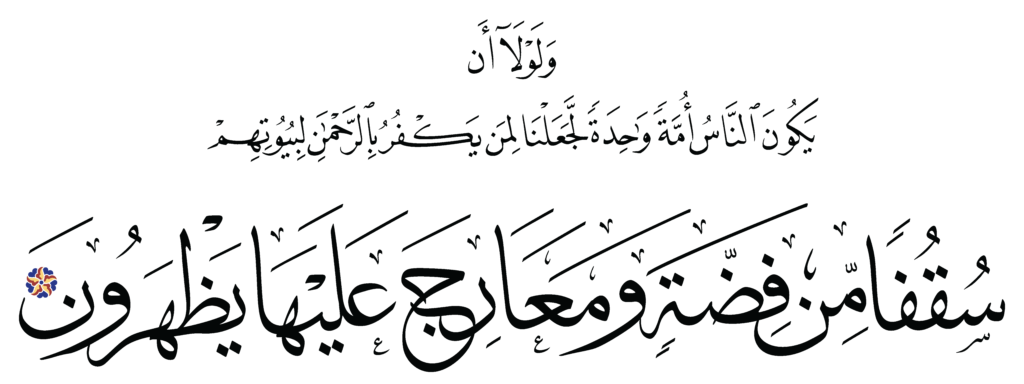 وَلَوْلَآ أَن
يَكُونَ ٱلنَّاسُ أُمَّةً وَٰحِدَةً لَّجَعَلْنَا لِمَن يَكْفُرُ بِٱلرَّحْمَٰنِ لِبُيُوتِهِمْ
سُقُفًا مِّن فِضَّةٍ وَمَعَارِجَ عَلَيْهَا يَظْهَرُونَ